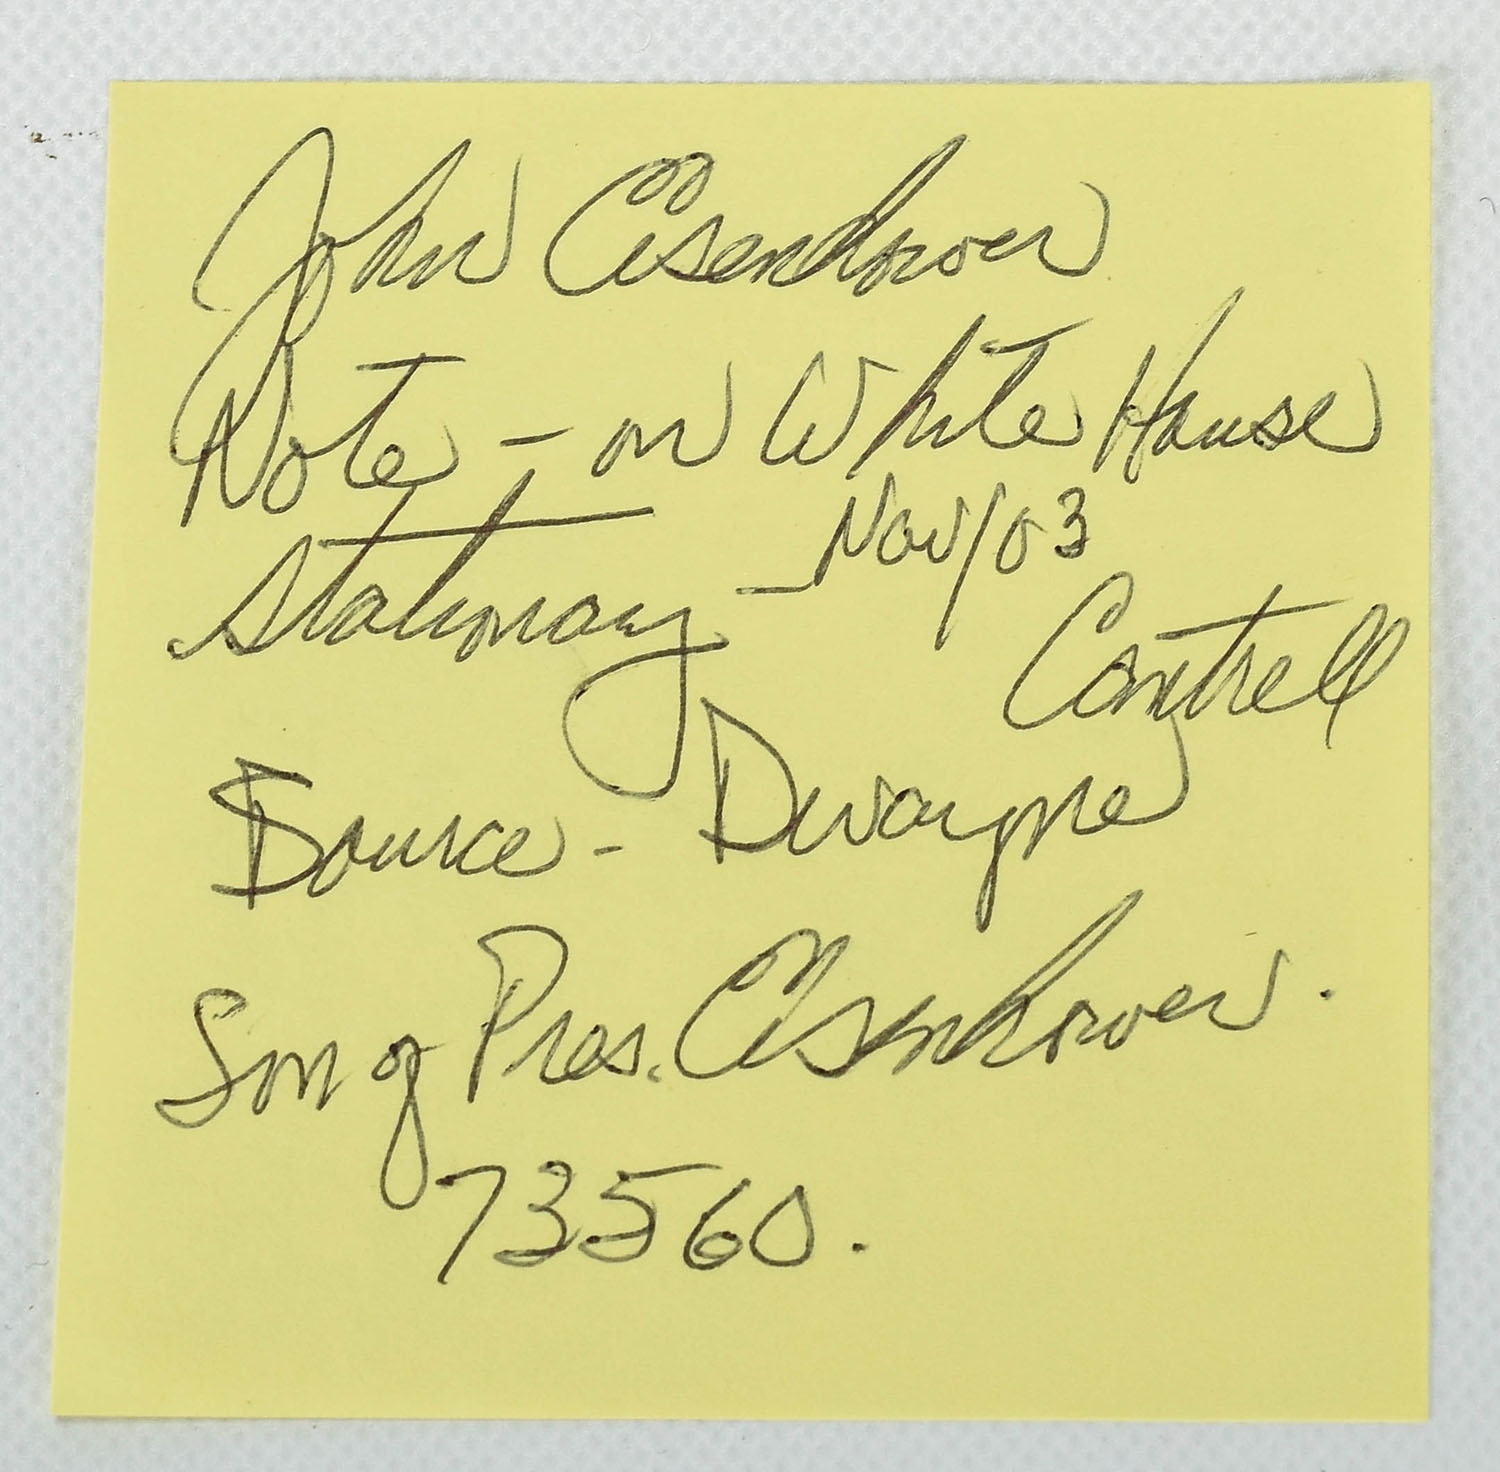 John Eisenhower
Note - on White House
Stationary - Nov/03
Source - Dwayne Cantrell
Son of Pres. Eisenhower.
73560.